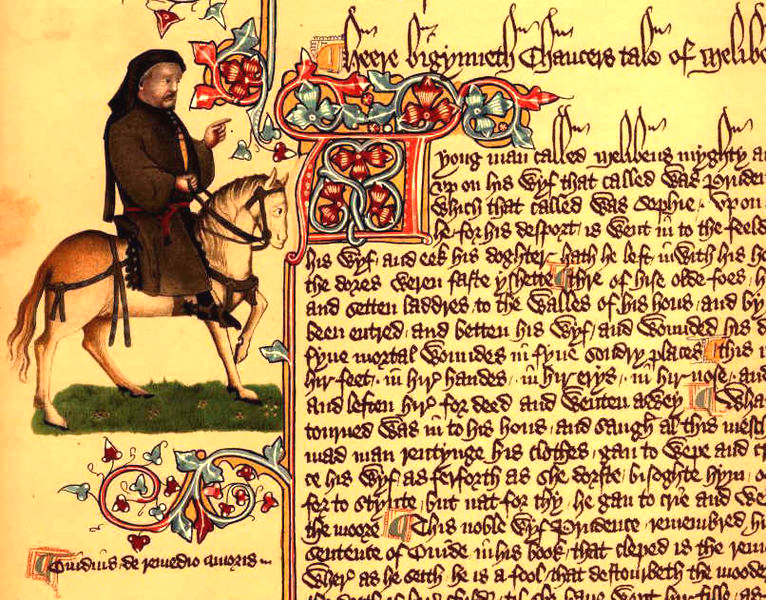 Heere bigynneth Chaucers tale of Melibe
A yong man called Melibeus myghty a
vp on his wyf that called was Pruden
which that called was Sophie / Vpon
he for his desport / is went in to the feeld
his wyf and eek his doghter / hath he left inwith his ho
the dores weren faste yshette / Thre of hise olde foes / h
and setten laddres to the walles of his hous and by
been entred / and betten his wyf / and wounded his d
fyue mortal woundes in fyue sondry places / this i
hir feet / in hir handes / in hir erys / in hir nose / and
and leften hir for deed and wenten awey / Wha
torned was in to his hous / and saugh al this mesch
mad man rentynge his clothes / gan to wepe and cr
ce his wyf as ferforth as she dorste / bisoghte hym o
for to stynte / but nat for thy he gan to crie and we
the moore This noble wyf Prudence / remembred hi
sentence of Ouide in his book / that cleped is the rem
wher as he seith he is a fool / that destourbeth the moode
Ouidius de remedio amoris